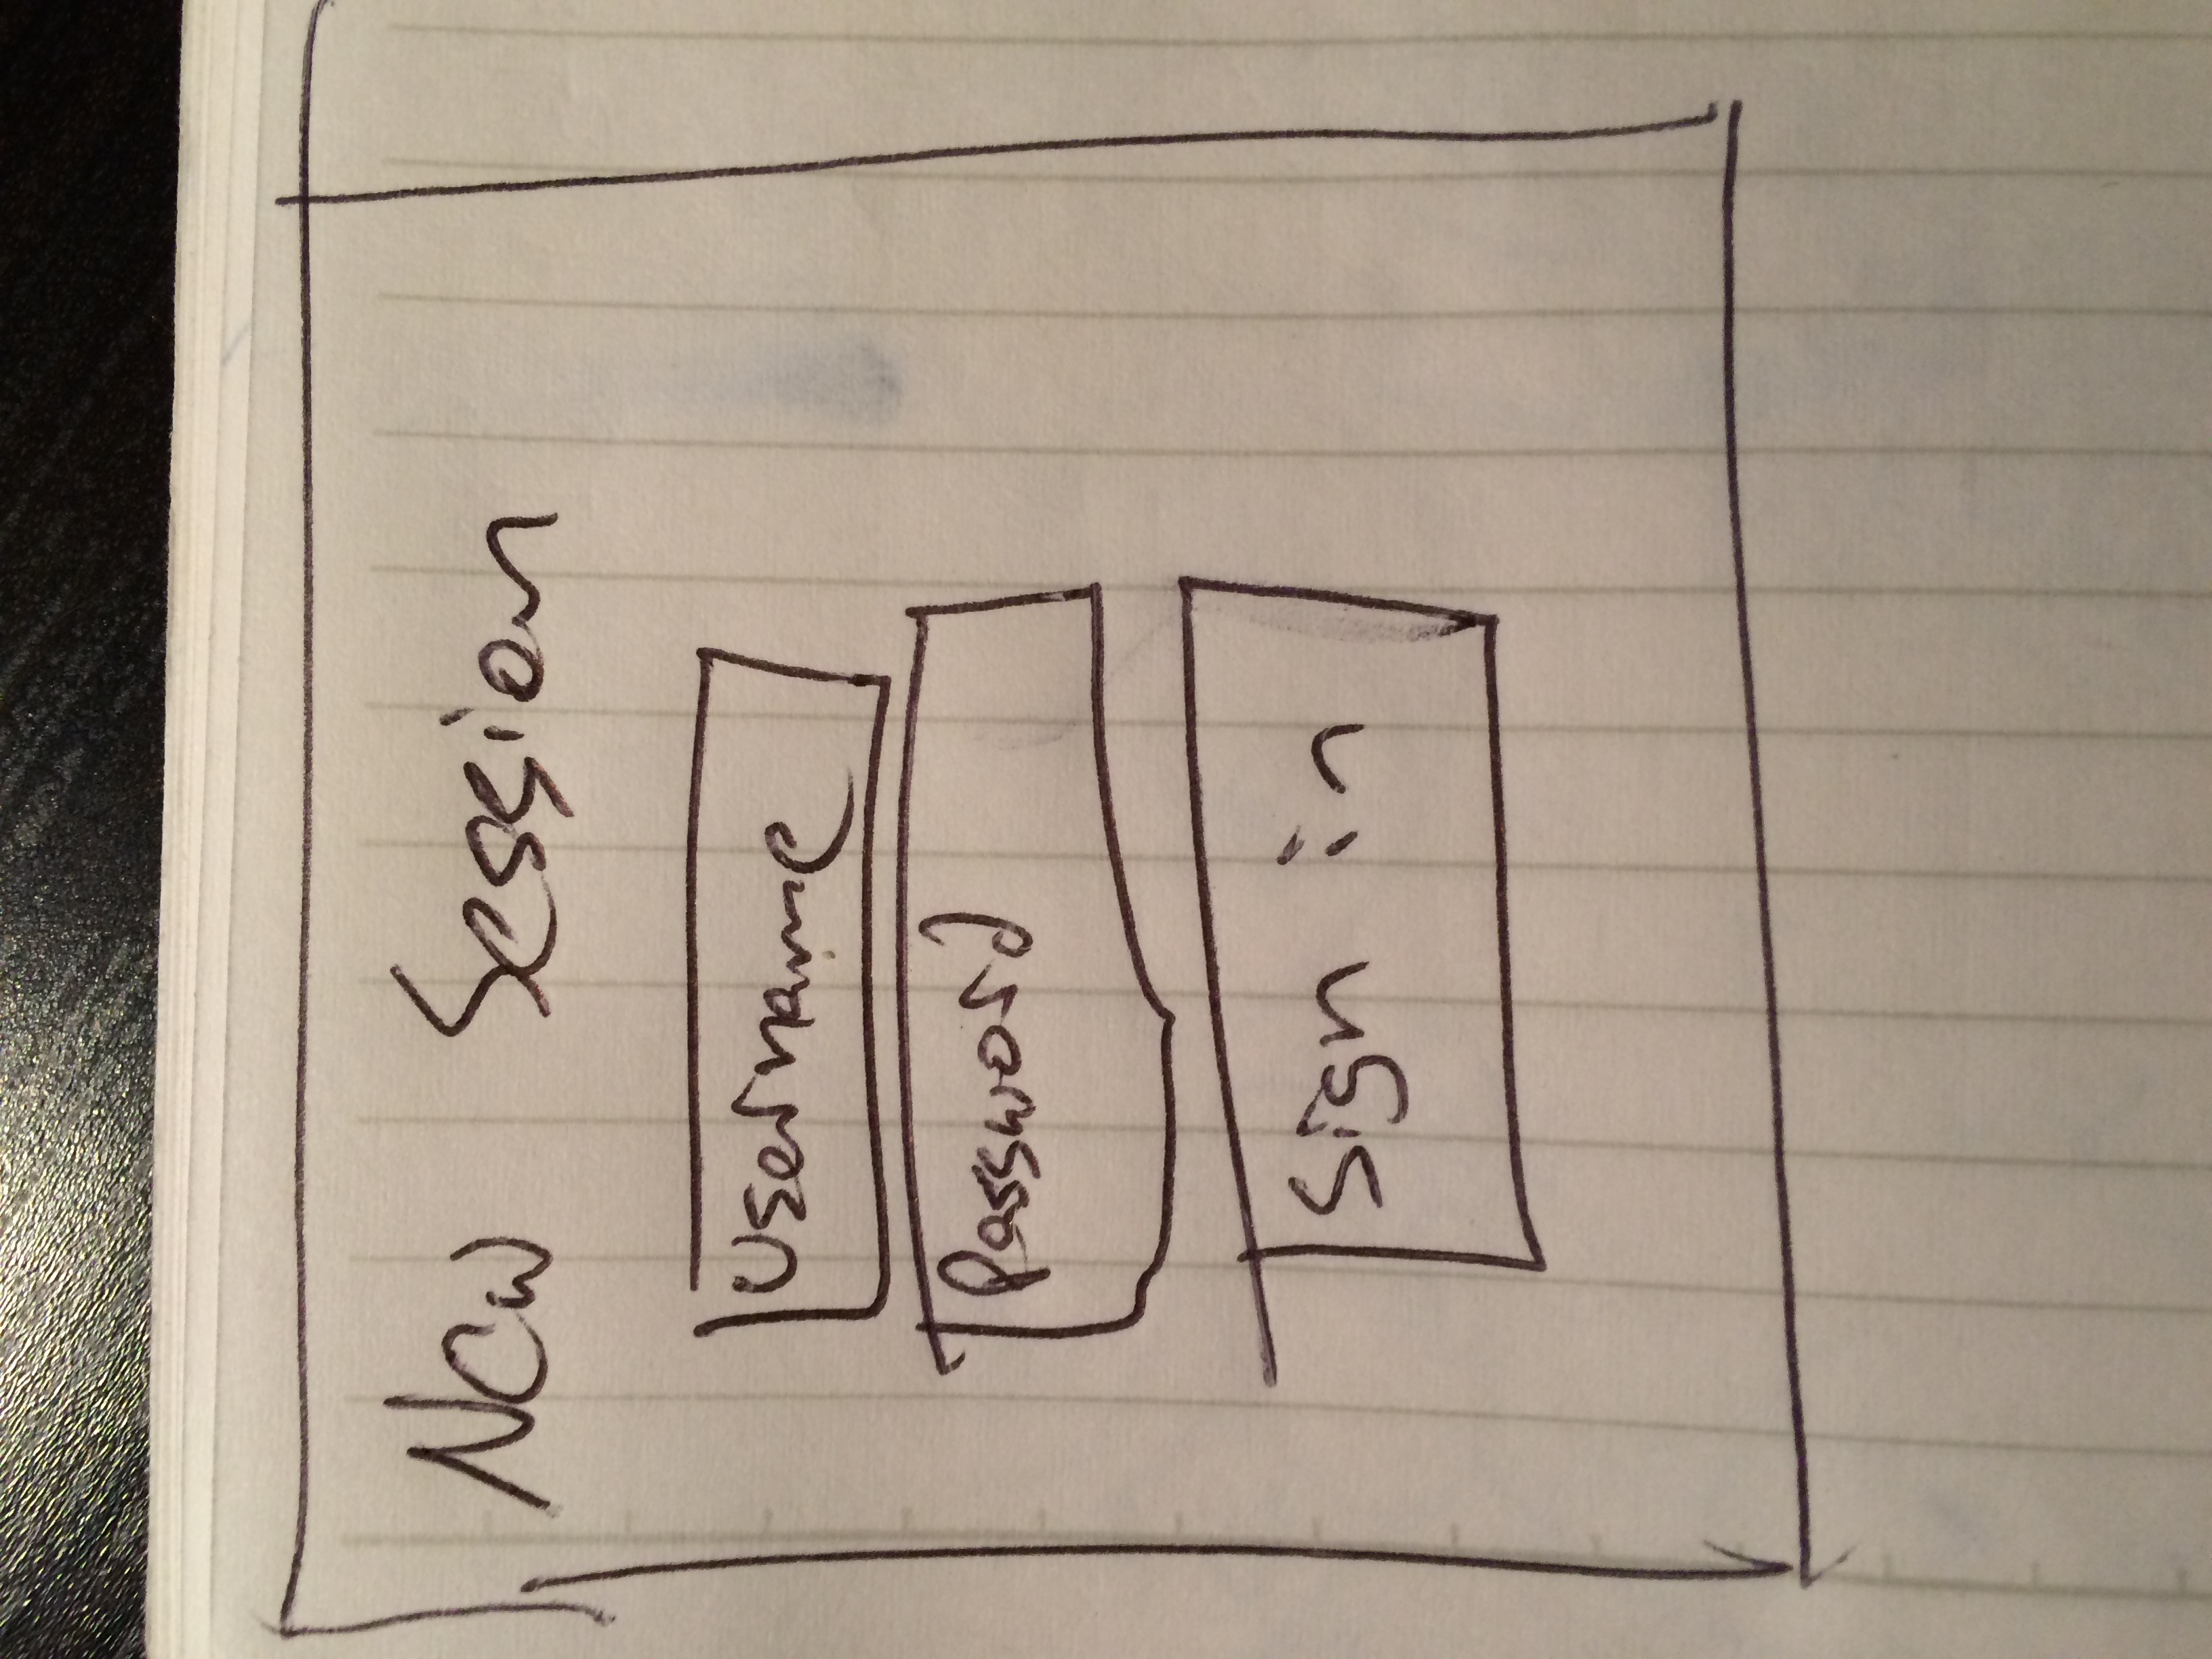 New Session
Username
Password
Sign in